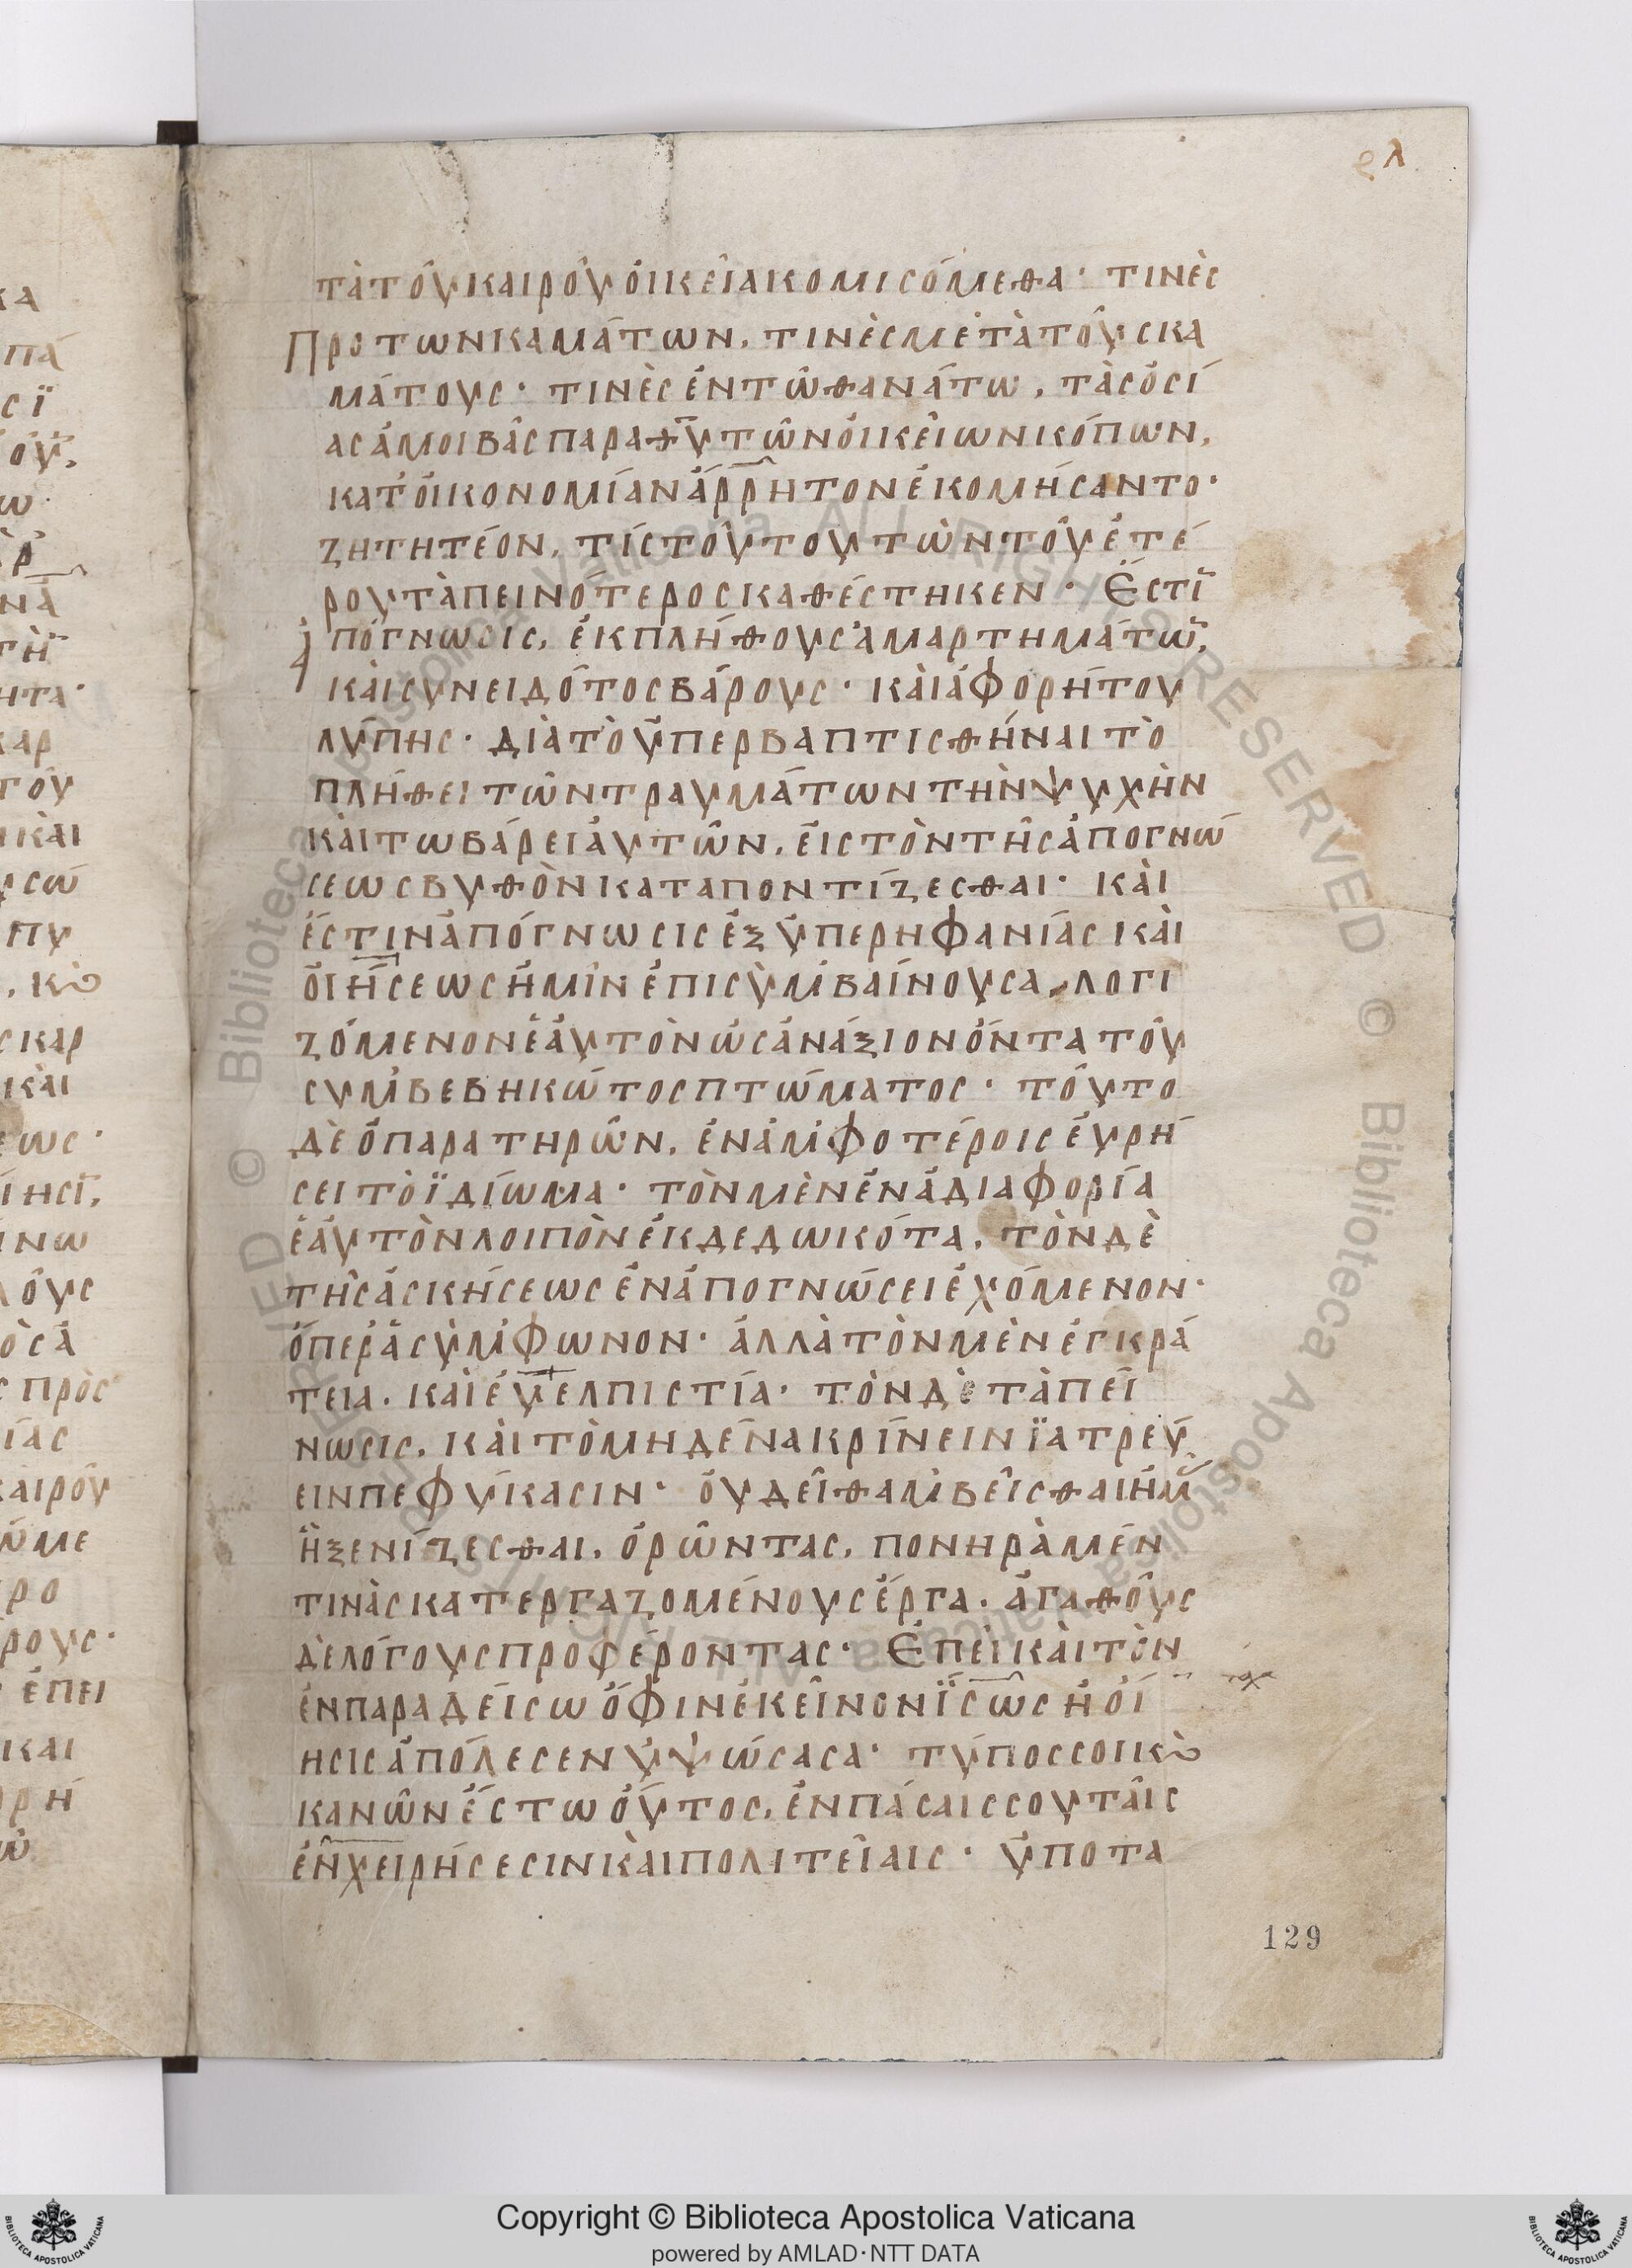 ρλ
τὰ τοῦ καιροῦ ὀικεῖα κομισόμεθα· τινὲς
προ των καμάτων, τινὲς μετὰ τοὺς κα
μάτους· τινὲς ἐν τῶ θανάτω, τὰς ὁσί
ας ἀμοιβὰς παρα θ̅υ̅ τῶν ὀικείων κόπων,
κατ' ὀικονομίαν ἄρρητον ἐκομήσαντο·
ζητητέον, τίς τούτου τῶν τοῦ ἑτέ
ρου ταπεινότερος καθέστηκεν· Ἔστῑ
ἀπόγνωσις, ἐκ πλήθους ἁμαρτημάτω̅,
κὰι συνειδότος βάρους· κὰι ἀφορήτου
λύπης· διὰ τὸ ὑπερβαπτισθῆναι τὸ
πλήθει τῶν τραυμάτων τὴν ψυχὴν
κὰι τω βάρει ἀυτῶν, ἐις τὸν τῆς ἀπογνώ
σεως βυθὸν καταποντίζεσθαι· κὰι
ἔστιν ἀπόγνωσις ἐξ ὑπερηφανίας κὰι
ὀιήσεως ἡμῖν ἐπισυμβαίνουσα, λογι
ζόμενον ἑαυτὸν ὡς ἀνάξιον ὄντα τοῦ
συμβεβηκώτος πτώματος· τοῦτο
δὲ ὁ παρατηρῶν, ἐν ἀμφοτέροις ἑυρή
σει τὸ ϊδίωμα· τὸν μὲν ἐν ἀδιαφορία
ἑαυτὸν λοιπὸν ἐκδεδωκότα, τὸν δὲ
τῆς ἀσκήσεως ἐν ἀπογνώσει ἐχόμενον·
ὅπερ ἀσύμφωνον· ἀλλὰ τὸν μὲν ἐγκρά
τεια, κὰι ἐυελπιστία· τὸν δὲ τὰπεί
νωσις, κὰι τὸ μηδένα κρίνειν ϊατρεύ
ειν πεφύκασιν· ὀυ δεῖ θαμβεῖσθαι ἡμ̅
ἢ ξενίζεσθαι, ὁρῶντας, πονηρὰ μέν
τινὰς κατεργαζομένους ἔργα, ἀγαθοὺς
δὲ λόγους προφέροντας· Ἐπεὶ κὰι τὸν
ἐν παραδείσω ὄφιν ἐκεῖνον ἴσως ἡ ὀί
ησις ἀπόλεσεν ὑψώσασα· τύπος σοι κ(αὶ)
κανὼν ἔστω ὁῦτος, ἐν πάσαις σου τᾶις
ἐνχειρήσεσιν κὰι πολιτείαις· ὑποτα
129
© Biblioteca Apostolica Vaticana ALL RIGHTS RESERVED © Biblioteca Apostolica Vaticana ALL RIGHTS RESERVED
Copyright © Biblioteca Apostolica Vaticana
powered by AMLAD·NTT DATA
BIBLIOTECA APOSTOLICA VATICANA
BIBLIOTECA APOSTOLICA VATICANA